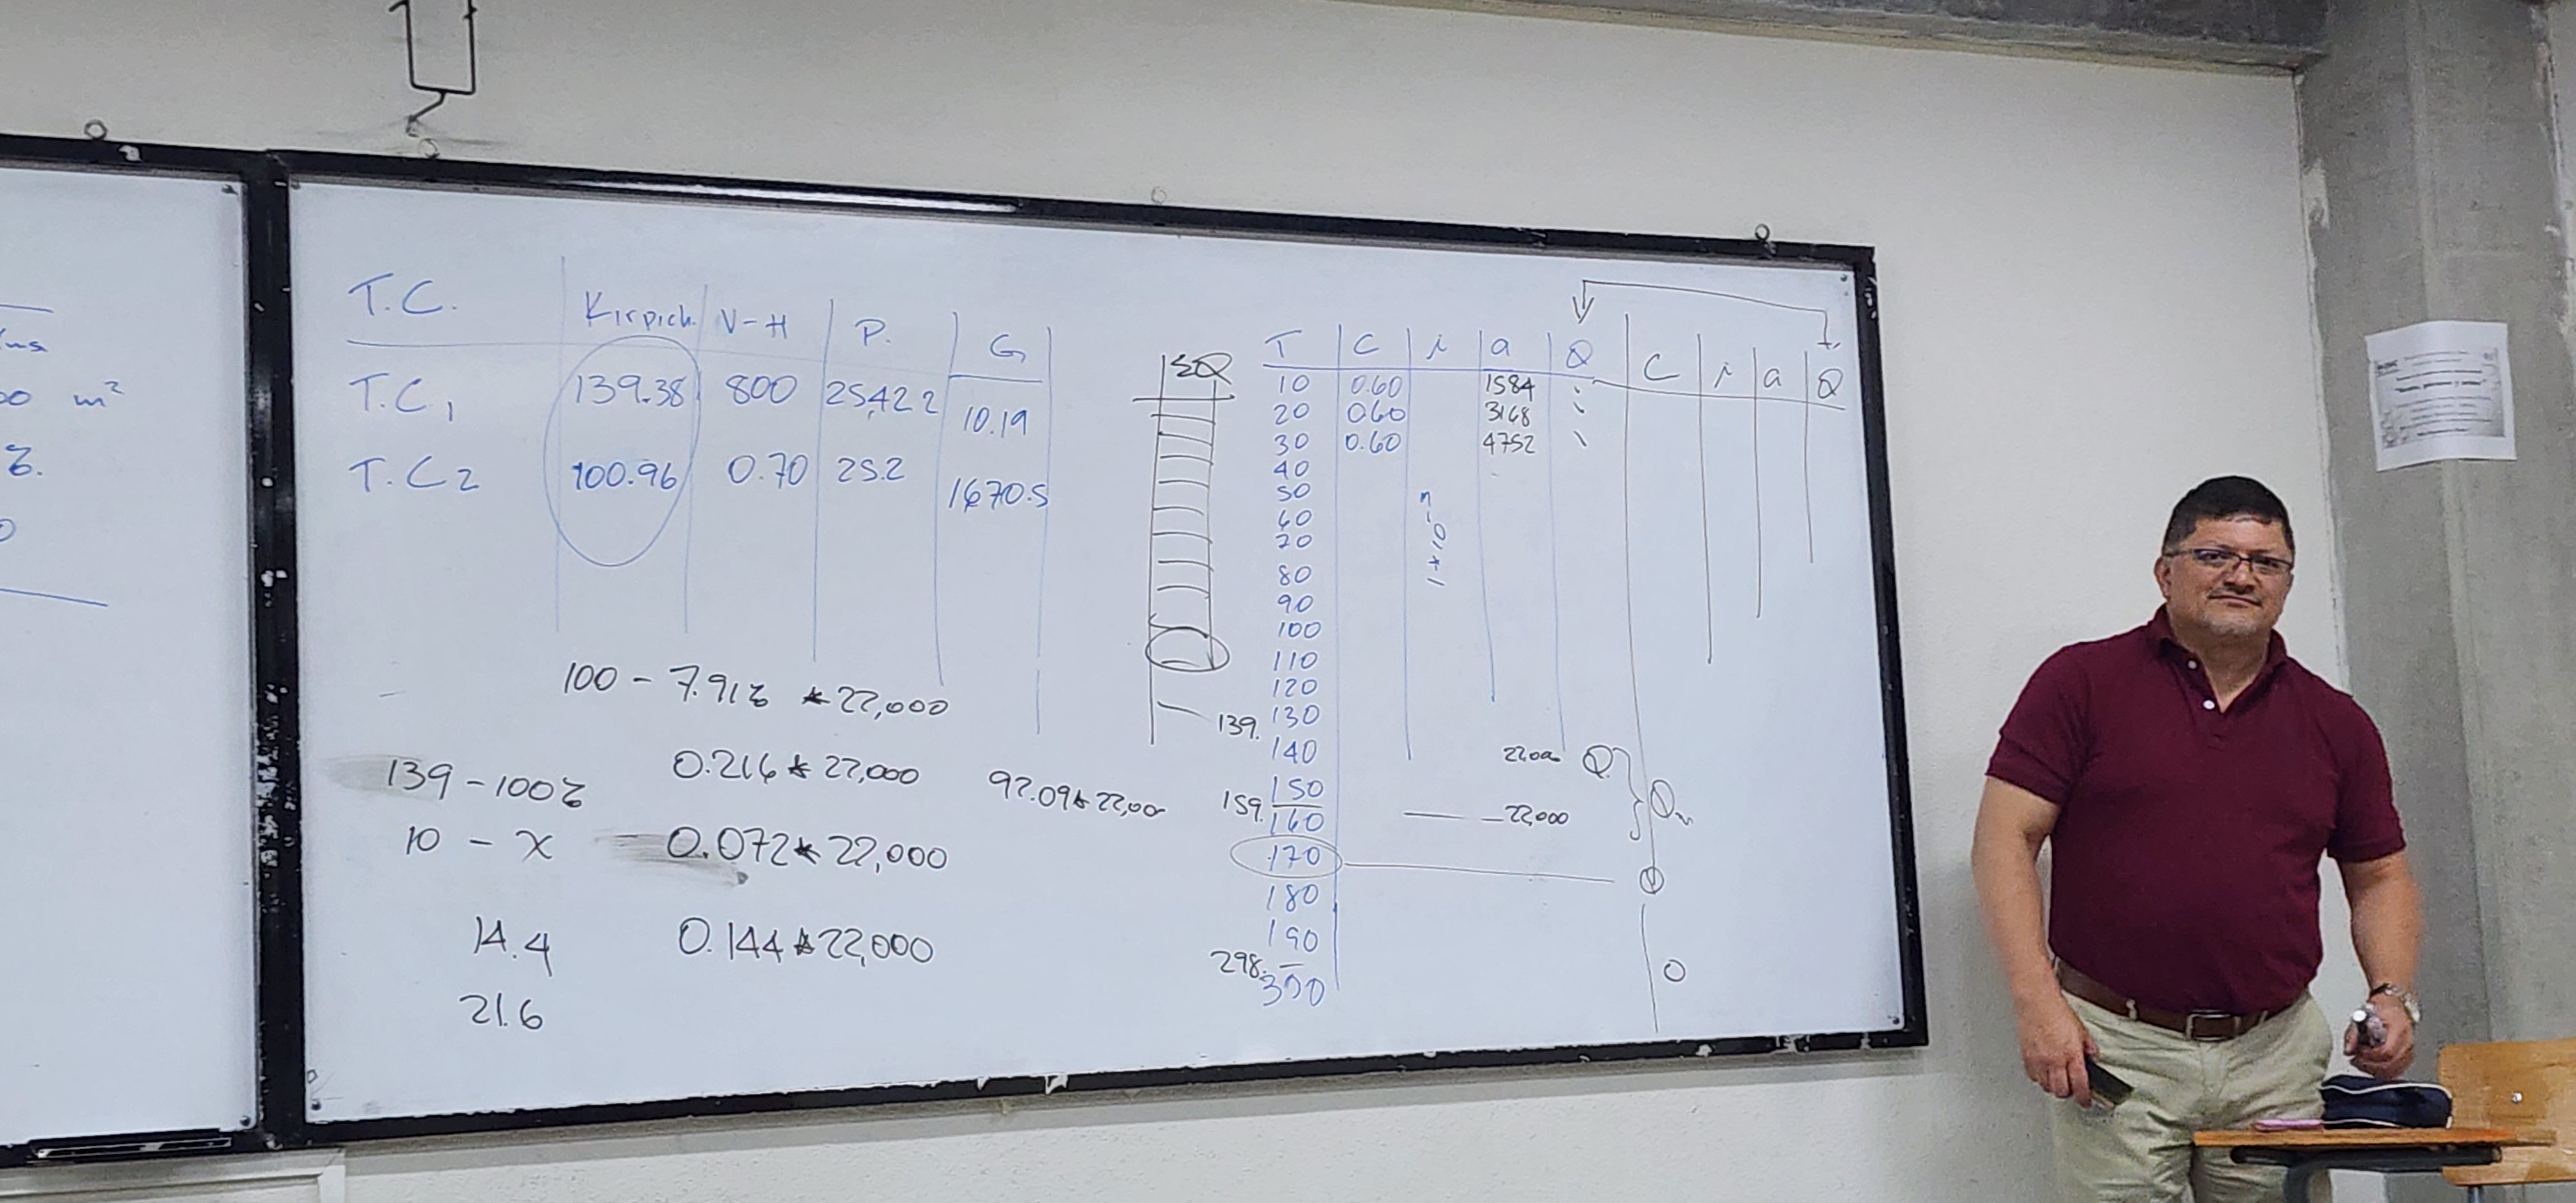 ms
00 m²
%.
0
T.C. Kirpich. V-H P. G
T.C₁ 139.38 800 25,422 10.19
T.C₂ 100.96 0.70 25.2 1670.5
100 - 7.91% * 22,000
139 - 100% 0.216 * 22,000 92.09 * 22,00
10 - x 0.072 * 22,000
14.4 0.144 * 22,000
21.6
ΣQ
139.
T C i a Q C i a Q
10 0.60 1584
20 0.60 3168
30 0.60 4752
40
50
60
70
80
90
100
110
120
130
140 22,000 Q
159. 150 Qn
160 22,000
170
180
190
298. 300 0